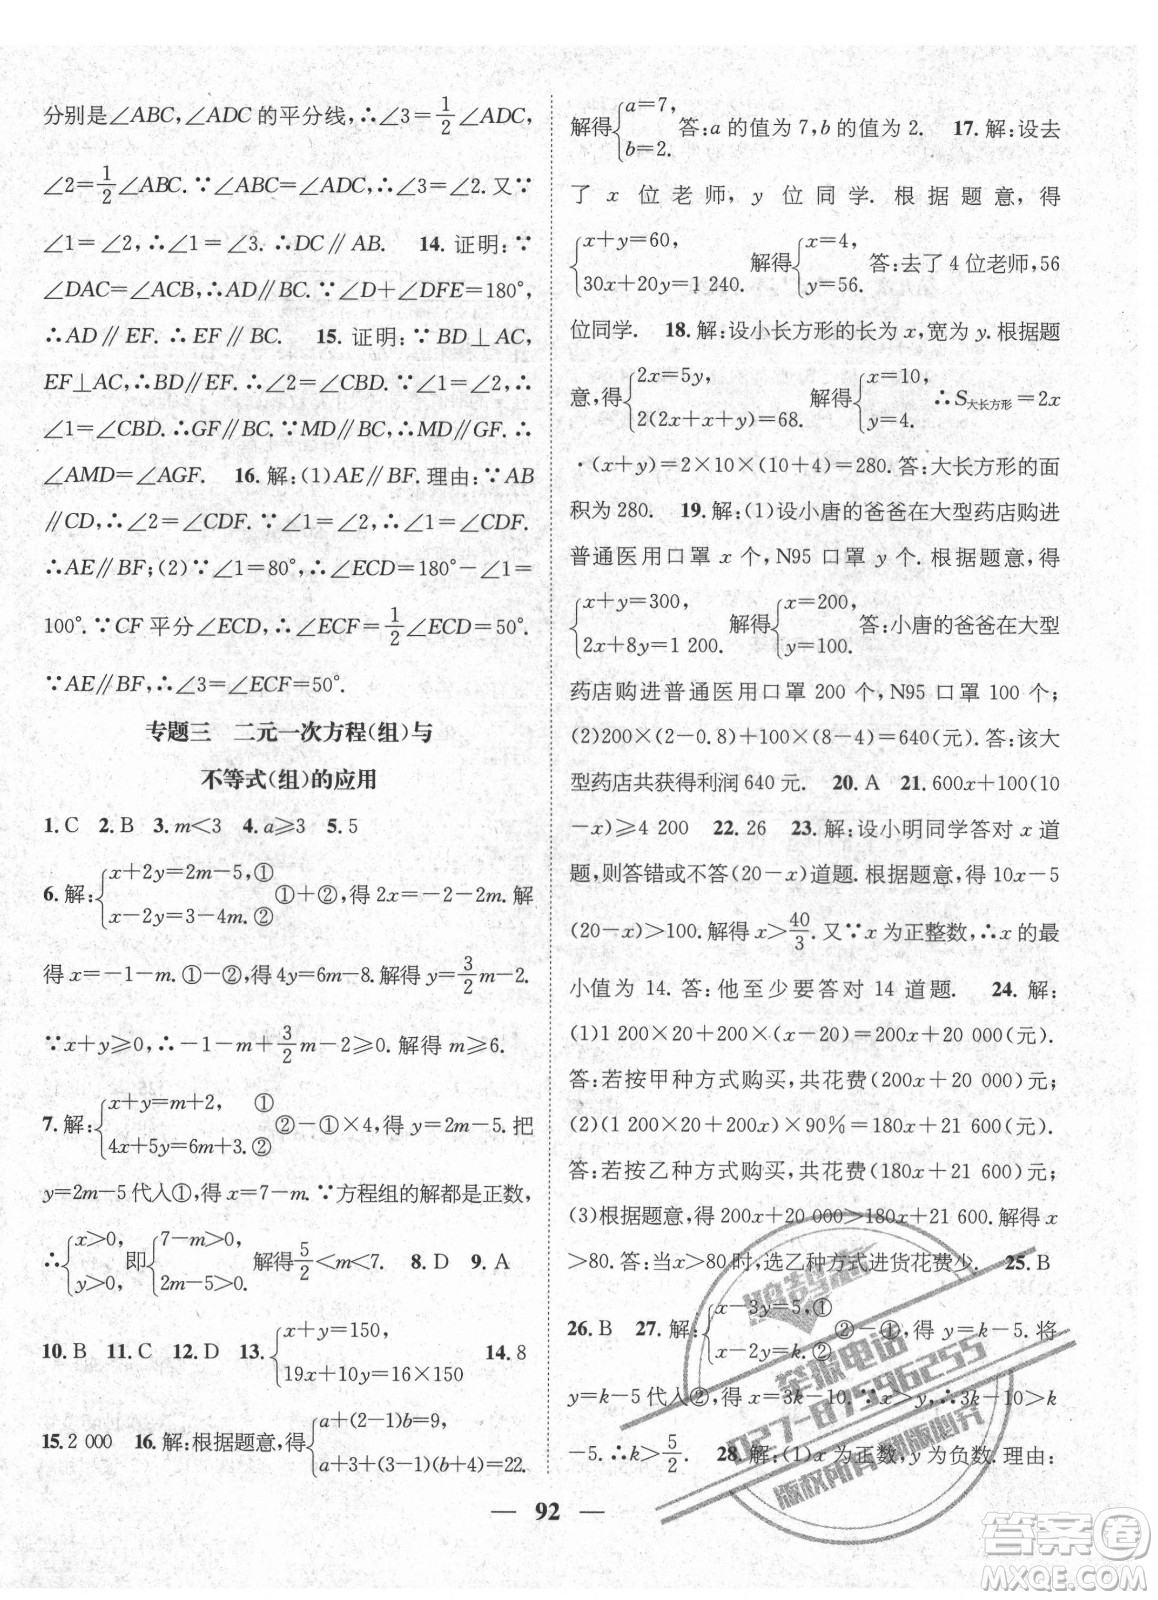 分别是∠ABC,∠ADC 的平分线,∴∠3=1/2∠ADC,
∠2=1/2∠ABC.∵∠ABC=∠ADC,∴∠3=∠2.又∵
∠1=∠2,∴∠1=∠3.∴DC∥AB. 14.证明:∵
∠DAC=∠ACB,∴AD∥BC.∵∠D+∠DFE=180°,
∴AD∥EF.∴EF∥BC. 15.证明:∵BD⊥AC,
EF⊥AC,∴BD∥EF.∴∠2=∠CBD.∵∠1=∠2,∴
∠1=∠CBD.∴GF∥BC.∵MD∥BC,∴MD∥GF.∴
∠AMD=∠AGF. 16.解:(1)AE∥BF.理由:∵AB
∥CD,∴∠2=∠CDF.∵∠1=∠2,∴∠1=∠CDF.
∴AE∥BF;(2)∵∠1=80°,∴∠ECD=180°-∠1=
100°.∵CF 平分∠ECD,∴∠ECF=1/2∠ECD=50°.
∵AE∥BF,∴∠3=∠ECF=50°.
专题三 二元一次方程(组)与
不等式(组)的应用
1.C 2.B 3.m<3 4.a≥3 5.5
6.解:{x+2y=2m-5,① x-2y=3-4m.② ①+②,得 2x=-2-2m.解
得 x=-1-m.①-②,得 4y=6m-8.解得 y=3/2m-2.
∵x+y≥0,∴-1-m+3/2m-2≥0.解得 m≥6.
7.解:{x+y=m+2, ① 4x+5y=6m+3.② ②-①×4,得 y=2m-5.把
y=2m-5 代入①,得 x=7-m.∵方程组的解都是正数,
∴{x>0, y>0, 即{7-m>0, 2m-5>0. 解得5/2<m<7. 8.D 9.A
10.B 11.C 12.D 13.{x+y=150, 19x+10y=16×150 14.8
15.2 000 16.解:根据题意,得{a+(2-1)b=9, a+3+(3-1)(b+4)=22.
解得{a=7, b=2. 答:a 的值为 7,b 的值为 2. 17.解:设去
了 x 位老师,y 位同学.根据题意,得
{x+y=60, 30x+20y=1 240. 解得{x=4, y=56. 答:去了 4 位老师,56
位同学. 18.解:设小长方形的长为 x,宽为 y.根据题
意,得{2x=5y, 2(2x+x+y)=68. 解得{x=10, y=4. ∴S大长方形=2x
·(x+y)=2×10×(10+4)=280.答:大长方形的面
积为 280. 19.解:(1)设小唐的爸爸在大型药店购进
普通医用口罩 x 个,N95 口罩 y 个.根据题意,得
{x+y=300, 2x+8y=1 200. 解得{x=200, y=100. 答:小唐的爸爸在大型
药店购进普通医用口罩 200 个,N95 口罩 100 个;
(2)200×(2-0.8)+100×(8-4)=640(元).答:该大
型药店共获得利润 640 元. 20.A 21.600x+100(10
-x)≥4 200 22.26 23.解:设小明同学答对 x 道
题,则答错或不答(20-x)道题.根据题意,得 10x-5
(20-x)>100.解得 x>40/3.又∵x 为正整数,∴x 的最
小值为 14.答:他至少要答对 14 道题. 24.解:
(1)1 200×20+200×(x-20)=200x+20 000(元).
答:若按甲种方式购买,共花费(200x+20 000)元;
(2)(1 200×20+200x)×90%=180x+21 600(元).
答:若按乙种方式购买,共花费(180x+21 600)元;
(3)根据题意,得 200x+20 000>180x+21 600.解得 x
>80.答:当 x>80 时,选乙种方式进货花费少. 25.B
26.B 27.解:{x-3y=5,① x-2y=k.② ②-①,得 y=k-5.将
y=k-5 代入②,得 x=3k-10.∵x>y,∴3k-10>k
-5.∴k>5/2. 28.解:(1)x 为正数,y 为负数.理由:
— 92 —
举报电话
027-87596255
版权所有 翻版必究
答案圈
MXQE.COM